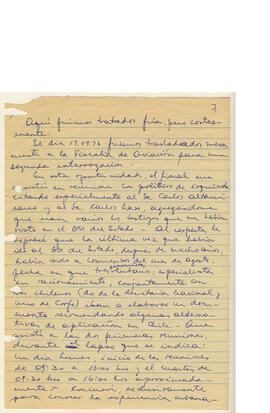 7
Aquí fuimos tratados fría, pero cortes-
mente.
El día 17.09.76 fuimos trasladados nueva
mente a la Fiscalía de Aviación para una
segunda interrogación.
En esta oportunidad, el fiscal me
en reuniones con políticos de izquierda
citando especialmente al Sr Carlos Altami-
rano y al Sr Carlos agregándome
que eran varios los testigos que me habían
visto en el Bco del Estado. - Al respecto, le
expresé que la última vez que había
ido al Bco del Estado después de muchos años,
había sido a comienzos del mes de Agosto,
fecha en que tres cubanos, especialistas
en racionamiento, conjuntamente con
chilenos (dos de la Secretaría Nacional y
uno de Corfo) iban a elaborar un docu-
mento recomendando algunas alterna-
tivas de aplicación en Chile. - Que
asistí a las dos primeras reuniones
durante el lapso que se indica:
Un día lunes, inicio de las reuniones
de 09:30 a 13:00 hrs y el martes de
09:30 hrs a 16:00 hrs aproximada-
mente. - exclusivamente
para conocer la experiencia cubana-